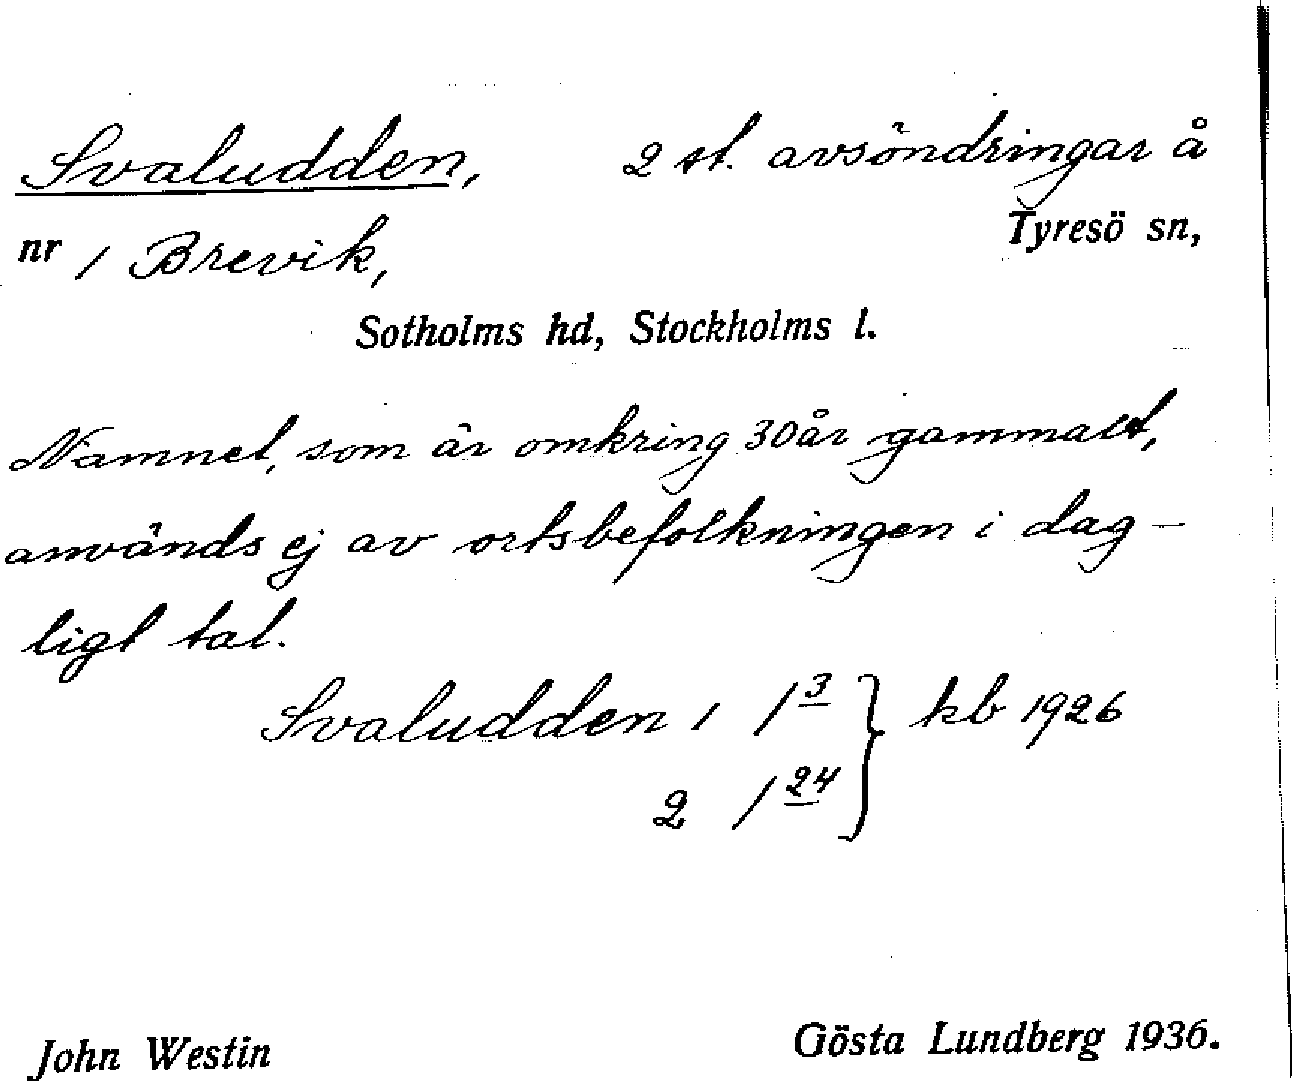 Svaludden, 2 st. avsöndringar å
nr 1 Brevik, Tyresö sn,
Sotholms hd, Stockholms l.
Namnet, som är omkring 30 år gammalt,
används ej av ortsbefolkningen i dag-
ligt tal.
Svaludden 1 1 3 } kb 1926
2 1 24
John Westin Gösta Lundberg 1936.